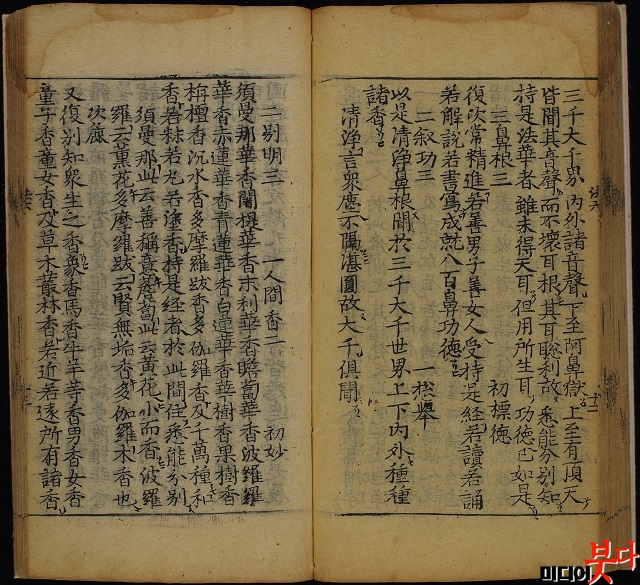 三千大千界 內外諸音聲 下至阿鼻獄 上至有頂天
皆聞其音聲 而不壞耳根 其耳聡利故 悉能分別知
持是法華者 雖未得天耳 但用所生耳 功德已如是
三鼻根三 初標德
復次常精進若善男子善女人受持是經若讀若誦
若解說若書寫成就八百鼻功德
二叙功三 一総擧
以是清淨鼻根聞於三千大千世界上下內外種種
諸香
清淨言衆塵不隔湛圓故大千俱聞
二别明三 一人間香二 初妙
須曼那華香闍提華香末利華香瞻蔔華香波羅羅
華香赤蓮華香青蓮華香白蓮華香華樹香果樹香
栴檀香沉水香多摩羅跋香多伽羅香及千萬種和
香若秣若丸若塗香持是経者於此間住悉能分別
須曼那此云善稱意瞻蔔此云黃花小而香波羅
羅云薰花多摩羅跋云賢無垢香多伽羅木香也
次麁
又復別知衆生之香象香馬香牛羊等香男香女香
童子香童女香及草木叢林香若近若遠所有諸香
미디어 붓다